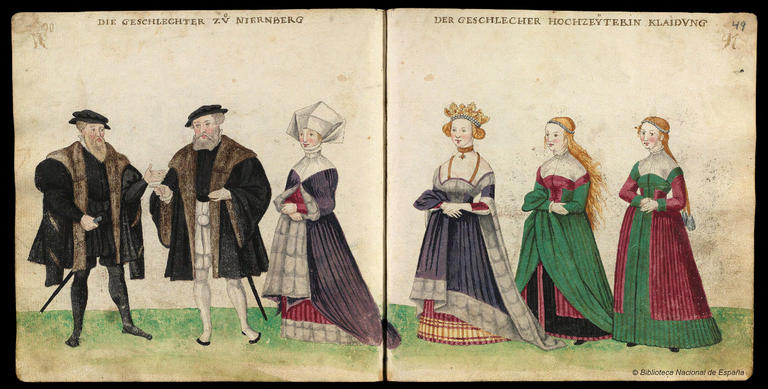 DIE GESCHLECHTER ZŮ NIERNBERG
DER GESCHLECHER HOCHZEŸTERIN KLAIDVNG
49
© Biblioteca Nacional de España